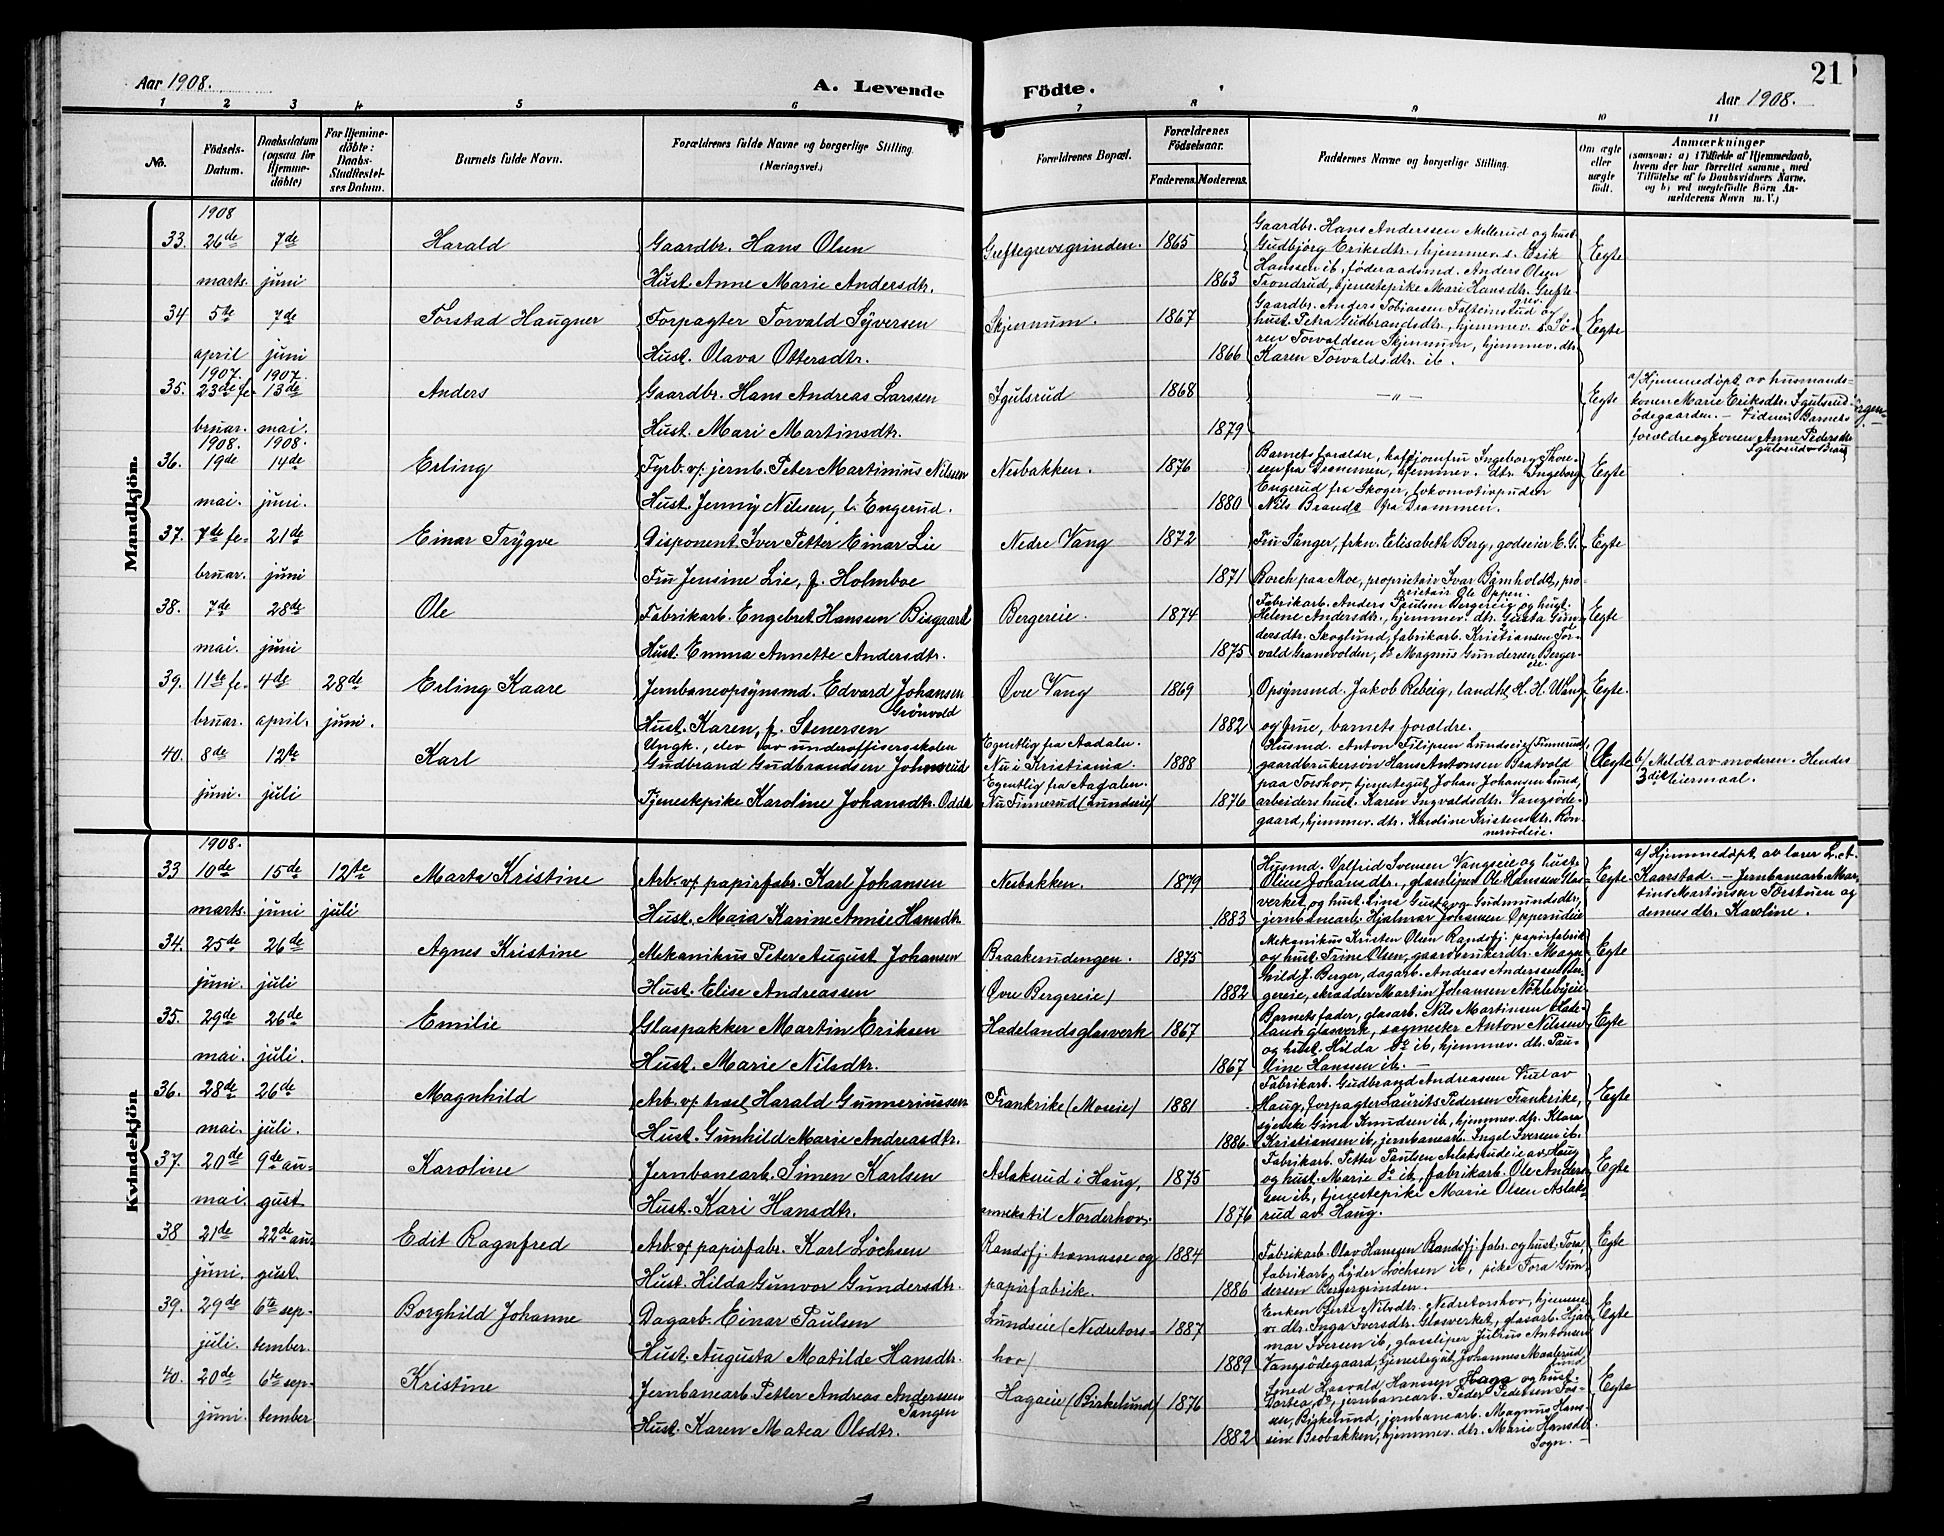 Aar 1908.
A. Levende
Födte.
21
Aar 1908.
1 2 3 4 5 6 7 8 9 10 11
No.
Födsels-
Datum.
Daabsdatum
(ogsaa for
Hjemme-
döbte)
For Hjemme-
döbte:
Daabs-
Stadfæstel-
ses Datum.
Barnets fulde Navn.
Forældrenes fulde Navne og borgerlige Stilling
(Næringsvei.)
Forældrenes Bopæl.
Forældrenes
Födselsaar.
Faderens. Moderens.
Faddernes Navne og borgerlige Stilling.
Om ægte
eller
uægte
födt.
Anmærkninger
(saasom: a) i Tilfælde af Hjemmedaab,
hvem der har forrettet samme, med
Tilföielse af to Daabsvidners Navne.
og b) ved uægtefödte Börn An-
melderens Navn m. V.)
Mandkjön.
1908
33. 26de marts. 7de juni
Harald
Gaardbr. Hans Olsen
Hust. Anne Marie Andersdtr.
Greftegrevsgrinden.
1865
1863
Gaardbr. Hans Anderssen Mellerud og hust.
Gudbjörg Eriksdtr., hjemmev. s. Erik
Hanssen ib, föderaadsmd. Anders Olsen
Trondrud, tjenestepike Mari Hansdtr. Grefte-
grev.
Egte
34 5te april 7de juni
Torstad Haugner
Forpagter Torvald Syversen
Hust. Olava Ottersdtr.
Skjernum.
1867
1866
Gaardbr. Anders Tobiassen Falteinstud og
hust. Petra Gudbrandsdtr., hjemmev. s. Sö-
ren Torvaldsen Skjernum, hjemmev. dtr.
Karen Torvaldsdtr. ib.
Egte
1907. 1907.
35. 23de fe-bruar. 13de mai.
Anders
Gaardbr. Hans Andreas Larssen
Hust. Mari Martinsdtr.
Igulsrud
1868
1879
— „ —
Egte
a/ Hjemmedöpt av husmands-
konen Marie Eriksdtr. Igulsrud-
ödegaarden. — Vidner: Barnets
forældre og konen Anne Pedersdtr.
1908. 1908.
36. 19de mai. 14de juni.
Erling
Fyrb. v/ jernb. Peter Martinius Nilsen
Hust. Jenny Nilsen, f. Engerud.
Nesbakken.
1876
1880
Barnets forældre, kafejomfru Ingeborg Thore-
sen fra Drammen, hjemmev. dtr. Ingeborg
Engerud fra Skoger, lokomotivpudser
Nils Brandt fra Drammen.
Egte
37. 7de fe-bruar. 21de juni
Einar Trygve
Disponent Iver Petter Einar Lie
Fru Jensine Lie, f. Holmboe
Nedre Vang
1872
1871
Fru Sanger, frkn. Elisabeth Berg, godseier E. G.
Borch paa Moe, proprietair Ivar Bömholdt, pro-
prietair Ole Oppen.
Egte
38. 7de mai. 28de juni
Ole
Fabrikarb. Engebret Hansen Bisgaard
Hust. Emma Annette Andersdtr.
Bergereie.
1874
1875
Fabrikarb. Anders Paulsen Bergereie og hust.
Helene Andersdtr., hjemmev. dtr. Gusta Gun-
dersdtr. Skoglund, fabrikarb. Kristiansen Tor-
vald Granevolden, do Magnus Gundersen Berger-
eie.
Egte
39. 11te fe-bruar. 4de april. 28de juni.
Erling Kaare
Jernbaneopsynsmd. Edvard Johansen
Grönvold
Hust. Karen, f. Stenersen
Övre Vang
1869
1882
Opsynsmd. Jakob Rebeig, landh. H. H. Wang
og frue, barnets forældre.
Egte.
40. 8de juni. 12te juli
Karl
Ungk., elev av underoffisersskolen
Gudbrand Gudbrandsen Johnsrud
Tjenestepike Karoline Johansdtr. Odda
Egentlig fra Aadalen.
Nu i Kristiania.
Egentlig fra Aadalen.
Nu Finnerud (Lundseie)
1888
1876
Husmd. Anton Filipsen Lundseie (Finnerud),
gaardbrukersön Hans Antonsen Bratvold
paa Torshov, tjenestegut Johan Johansen Lund,
arbeiders hust. Karen Ingvaldsdtr. Vangsöde-
gaard, hjemmev. dtr. Karoline Kristensdtr. Rön-
nerudeie.
Uegte
b/ Meldt av moderen. Hendes
3die leiermaal.
Kvindekjön
1908.
33 10de marts. 15de juni 12te juli
Marta Kristine
Arb. v/ papirfabr. Karl Johansen
Hust. Maia Karine Annie Hansdtr.
Nesbakken.
1879
1883
Husmd. Valfrid Svensen Vangseie og hust.
Oline Johansdtr., glassliper Ole Hanssen Glas-
verket og hust. Lina Gustava Gudmundsdtr.,
jernbanearb. Hjalmar Johansen Opperudeie
Egte
a/ Hjemmedöpt av lærer L. A.
Kaarstad. — Jernbanearb. Mar-
tins Martinsen Torstuen og
dennes dtr. Karoline.
34. 25de juni. 26de juli
Agnes Kristine
Mekanikus Peter August Johansen
Hust. Elise Andreassen
Braakerudengen.
(Övre Bergereie)
1875
1882
Mekanikus Kristen Olsen Randsfj. papirfabrik
og hust. Trine Olsen, gaardbrukerdtr. Magn-
hild J. Berger, dagarb. Andreas Anderssen Ber-
gereie, skrædder Martin Johansen Nöklebyeie.
Egte
35. 29de mai. 26de juli.
Emilie
Glaspakker Martin Eriksen
Hust. Marie Nilsdtr.
Hadelandsglasverk
1867
1867
Barnets fader, glasarb. Nils Martinsen Hade-
lands glasverk, sagmester Anton Nilssen
og hust. Hilda do ib, hjemmev. dtr. Pau-
line Hanssen ib. —
Egte
36. 28de mai. 26de juli.
Magnhild
Arb. v/ træsl. Harald Gunneriussen
Hust. Gunhild Marie Andreasdtr.
Frankrike (Moseie)
1881
1886.
Fabrikarb. Gudbrand Andreasen Viul av
Haug, forpagter Laurits Pedersen Frankrike,
syerske Gina Knudsen ib, hjemmev. dtr. Klara
Kristiansen ib, jernbanearb. Ingel Iversen ib.
Egte
37. 20de mai. 9de au-gust
Karoline
Jernbanearb. Simen Karlsen
Hust. Kari Hansdtr.
Aslakrud i Haug,
anneks til Norderhov.
1875
1876
Fabrikarb. Petter Paulsen Aslakrudeie av Haug
og hust. Marie do ib, fabrikarb. Ole Anders-
sen ib, tjenestepike Marie Olsen Aslak-
rud av Haug.
Egte
38 21de juni. 22de au-gust.
Edit Ragnfred
Arb. v/ papirfabr. Karl Löchsen
Hust. Hilda Gunvor Gundersdtr.
Randsfj. træmasse og
papirfabrik.
1884
1886
Fabrikarb. Olav Hansen Randsfj. fabr. og hust. Tora,
fabrikarb. Lyder Löchsen ib, pike Tora Gun-
dersen Bergergrinden.
Egte
39. 29de juli. 6te sep-tember.
Borghild Johanne
Dagarb. Einar Paulsen
Hust. Augusta Matilde Hansdtr.
Lundseie (Nedretors-
hov)
1887
1889
Enken Berte Nilsdtr. Nedretorshov, hjemme-
v. dtr. Inga Iversdtr. Glasverket, glasarb. Hjal-
mar Iversen ib, glassliper Julius Antonsen
Vangsödegaard, tjenestegut Johannes Maalerud
Lund
Egte
40. 20de juni. 6te sep-tember
Kristine
Jernbanearb. Petter Andreas Anderssen
Tangen
Hust. Karen Matea Olsdtr.
Hagaeie (Birkelund)
1876
1882
Smed Haavald Hanssen Haga og hust.
Dortea do, jernbanearb. Peder Pedersen Fos-
sen, Birkelund, jernbanearb. Magnus Hans-
sen Brobakken, hjemmev. dtr. Marie Hansdtr.
Sogn. —
Egte